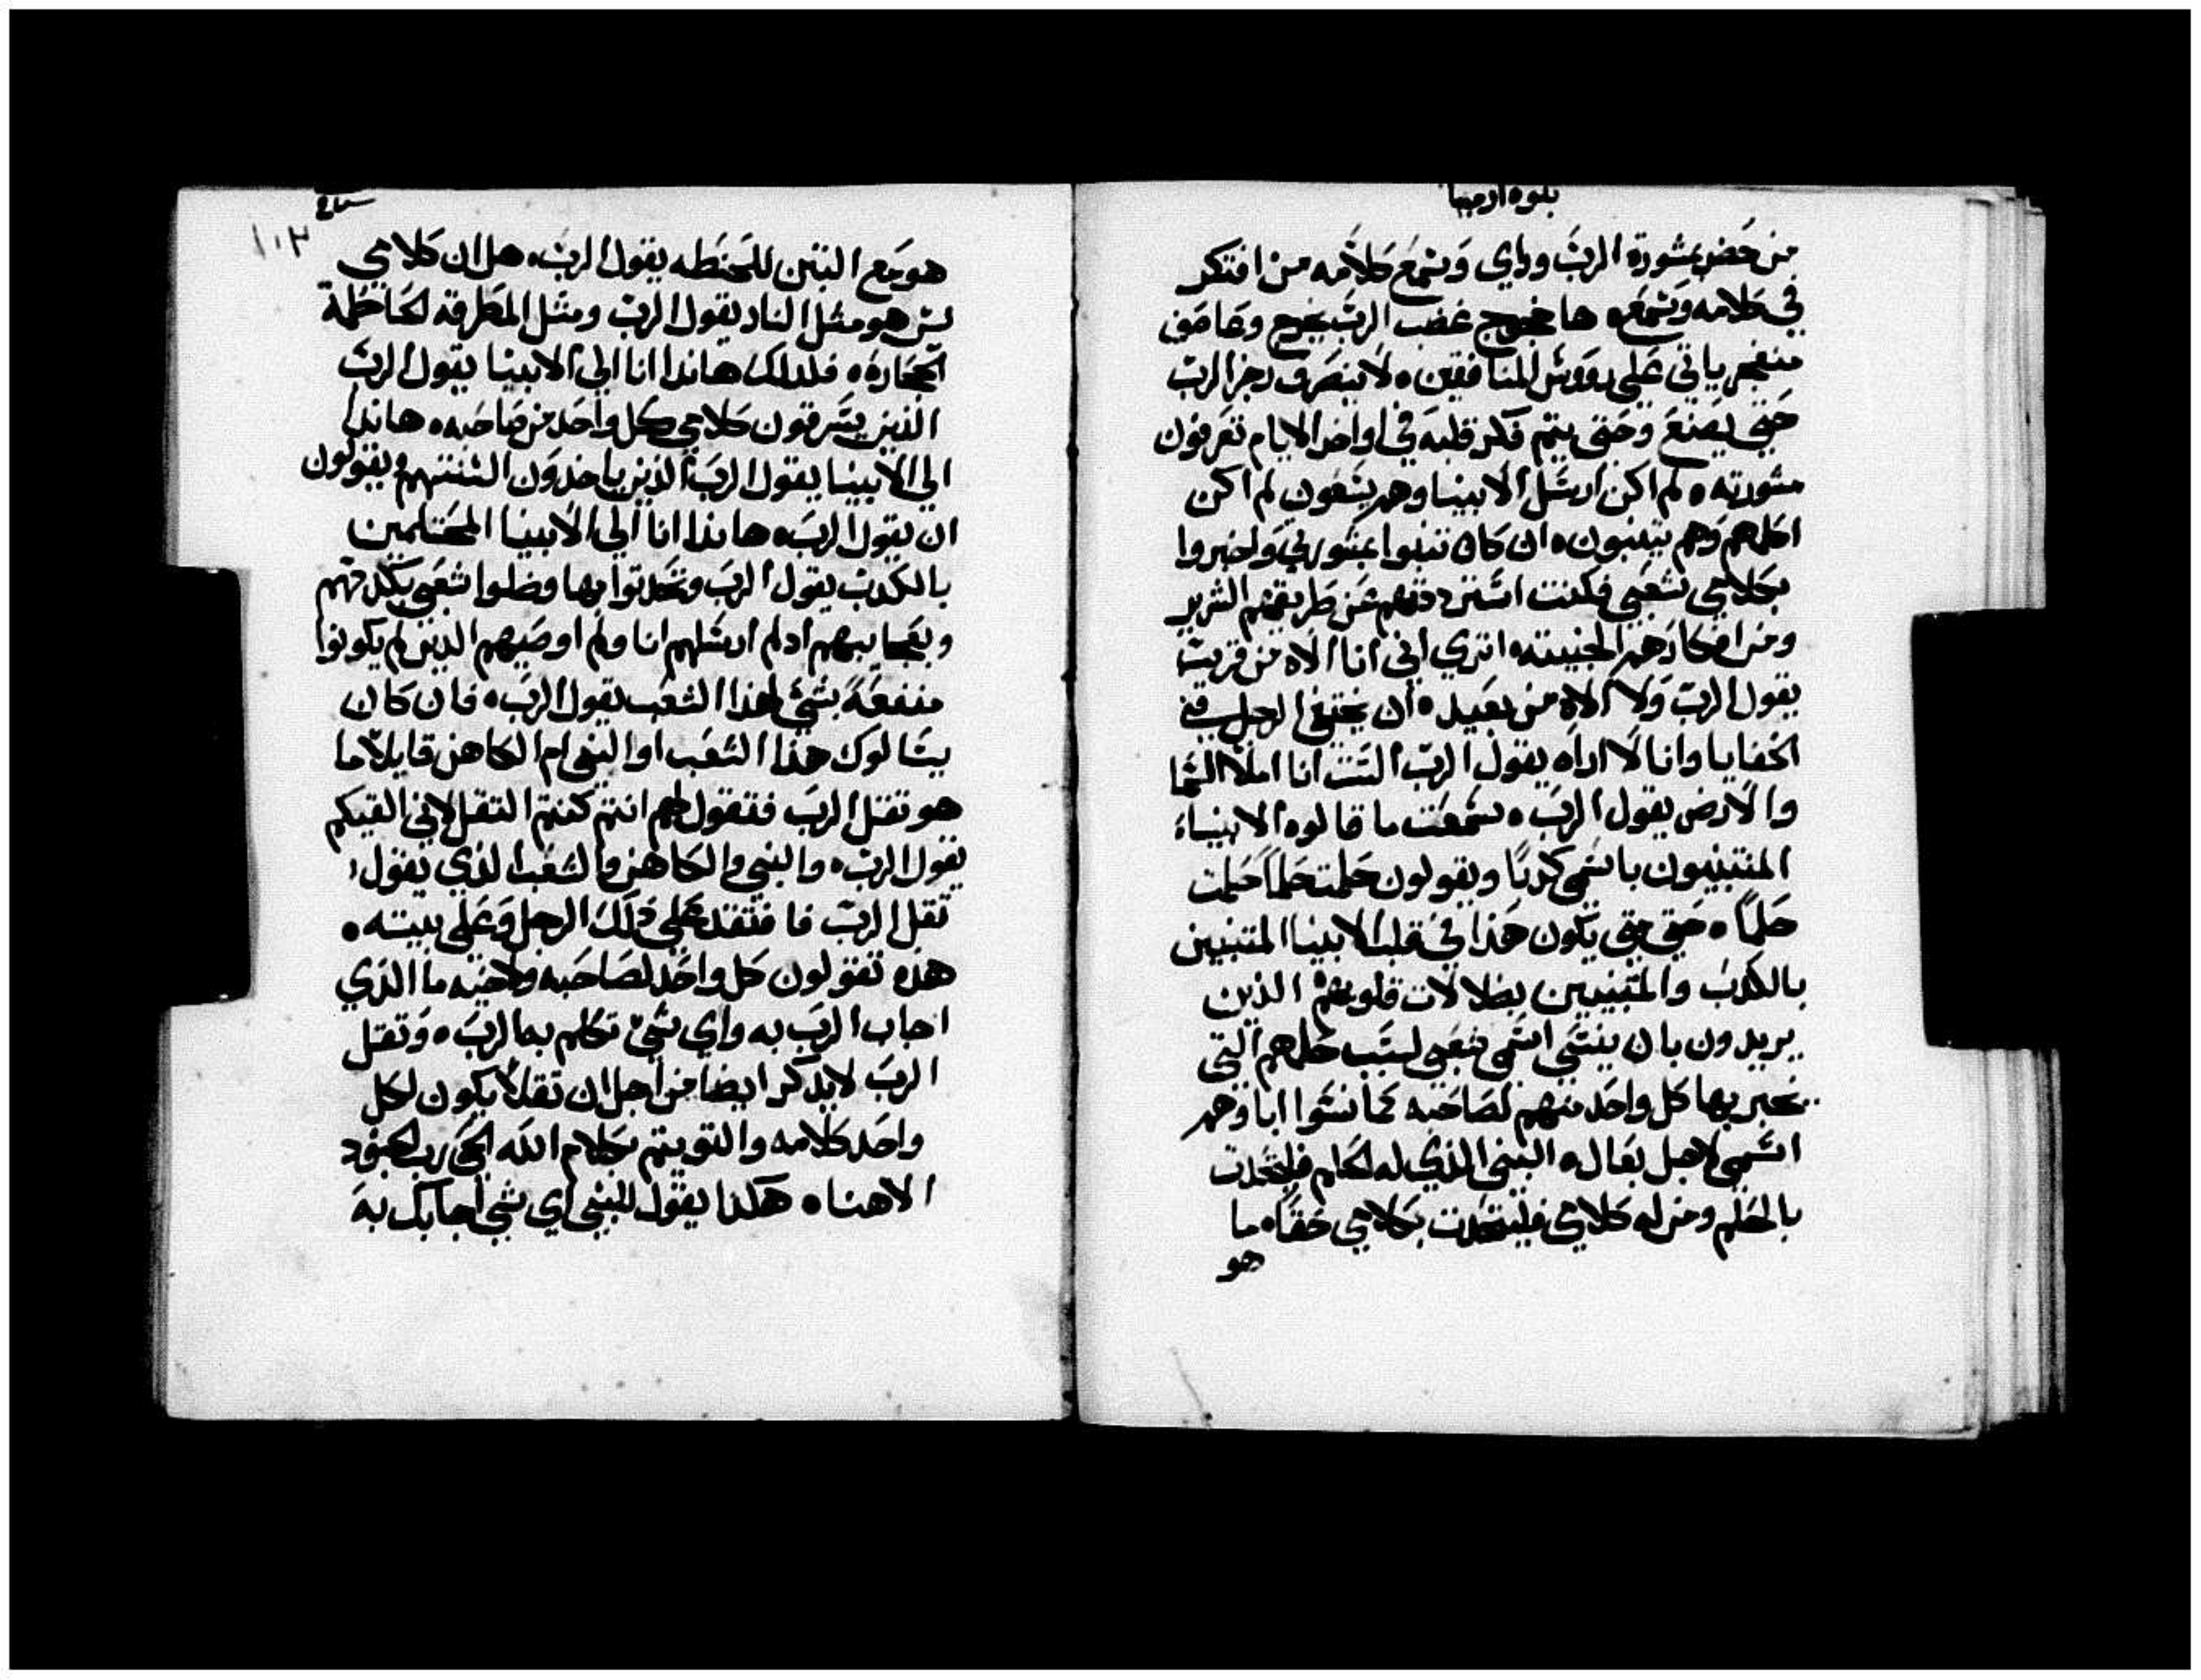 نبوه ارميا
من حضر بمشورة الرب وراي وسمع كلامه من افتكر
في كلامه وسمعه ها خروج غضب الرب يخرج وعاصف
منفجر ياتي علي رووس المنافقين ه لا ينصرف رجز الرب
حتي يصنع وحتي يتم فكر قلبه في اواخر الايام تعرفون
مشورته ه لم اكن ارسل الانبيا وهم يسعون لم اكن
اكلمهم وهم يتنبون ه ان كان ثبتوا بمشورتي واخبروا
بكلامي شعبي فكنت استرددتهم عن طريقهم الشرير
ومن افكارهم الخبيثه ه اتري اني انا الاه من قريب
يقول الرب ولا الاه من بعيد ه ان يختفي الرجل في
الخفايا وانا لا اراه يقول الرب الست انا املا السما
والارض يقول الرب ه سمعت ما قالوه الانبياء
المتنبيون باسمي كذبًا ويقولون حلمت حلمًا حلمت
حلمًا ه حتي متي يكون هذا في قلب الانبيا المتنبيين
بالكذب والمتنبيين بظلالات قلوبهم الذين
يريدون بان ينسي اسمي شعبي لسبب حلمهم التي
يخبر بها كل واحد منهم لصاحبه كما نسوا اباوهم
اسمي لاجل بعال ه النبي الذي له الحلم فليتحدث
بالحلم ومن له كلامي فليتحدث بكلامي حقًا ه ما
هو
١٠٣
هو مع التبن للحنطه يقول الرب ه هل ان كلامي
ليس هو مثل النار يقول الرب ومثل المطرقه الحاطمة
الحجاره ه فلذلك هانذا انا الي الانبيا يقول الرب
الذين يسرقون كلامي كل واحد من صاحبه ه هانذا
الي الانبيا يقول الرب الذين ياخذون السنتهم ويقولون
ان يقول الرب ه هانذا انا الي الانبيا المحتلمين
بالكذب يقول الرب وتحدثوا بها وضلوا شعبي بكذبهم
وبعجايبهم اذ لم ارسلهم انا ولم اوصيهم الذين لم يكونوا
منفعة بشي لهذا الشعب يقول الرب ه فان كان
يسالوك هذا الشعب او النبي ام الكاهن قايلا ما
هو ثقل الرب فتقول لهم انتم كنتم الثقل لاني القيكم
يقول الرب ه والنبي والكاهن والشعب الذي يقول
ثقل الرب فافتقد علي ذلك الرجل وعلي بيته ه
هذه تقولون كل واحد لصاحبه ولاخيه ما الذي
اجاب الرب به واي شي تكلم بها الرب ه وثقل
الرب لا يذكر ايضا من اجل ان ثقلًا يكون لكل
واحد كلامه والتويتم بكلام الله الحي رب الجنود
الاهنا ه هكذا يقول للنبي اي شي اجابك به